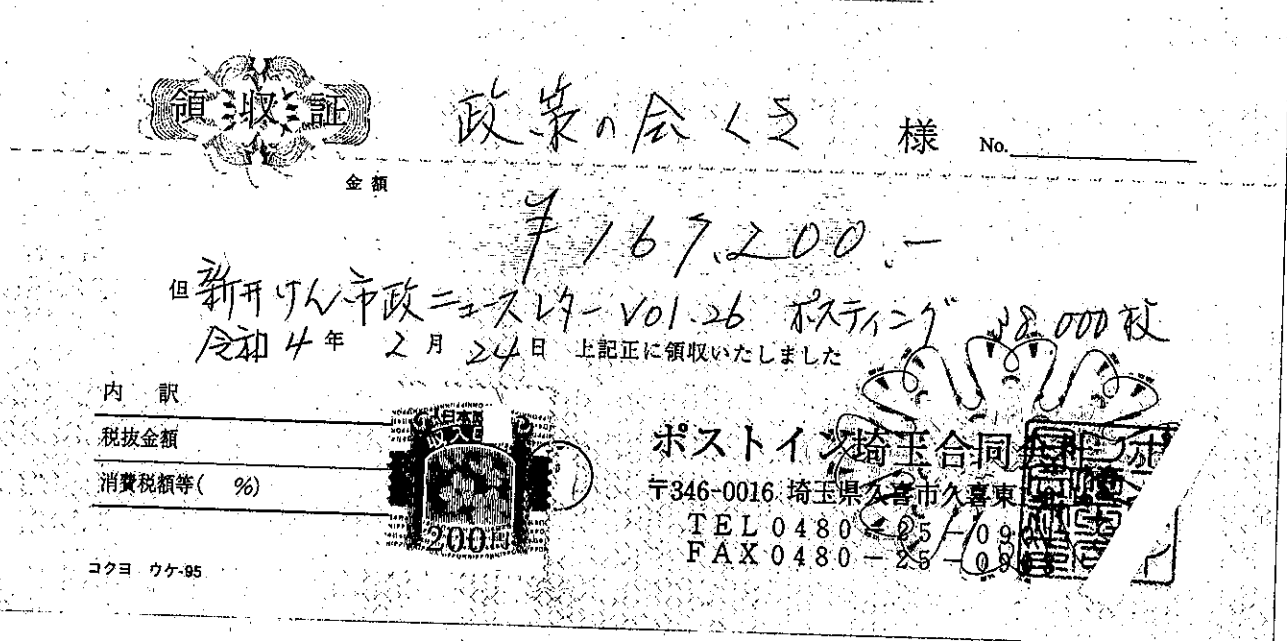 領収証 政策の会くき 様 No.
金額
¥167,200.-
但 新井けん市政ニュースレター vol.26 ポスティング 38,000枚
令和4年 2月 24日 上記正に領収いたしました
内訳
税抜金額
消費税額等( %)
日本
200円
ポストイン埼玉合同会社
〒346-0016 埼玉県久喜市久喜東
TEL 0480-25-09
FAX 0480-25-09
コクヨ ウケ-95